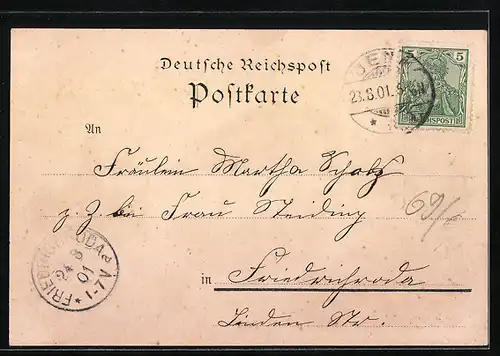 Deutsche Reichspost
Postkarte
JENA
23.8.01.
5 5
REICHSPOST
An
Fräulein Martha Scholz
z. Z bei Frau Steiding
69/
FRIEDRICHRODA
24 8
01
1-7V
in Friedrichroda
Linden Str.